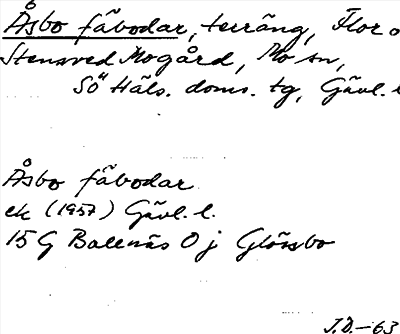 Åsbo fäbodar, terräng, Flor o
Stensved Mogård, Mo sn,
Sö Häls. doms. tg, Gävl. l
Åsbo fäbodar
ek (1957) Gävl. l.
15G Ballnäs 0j Glössbo
J.D.–63